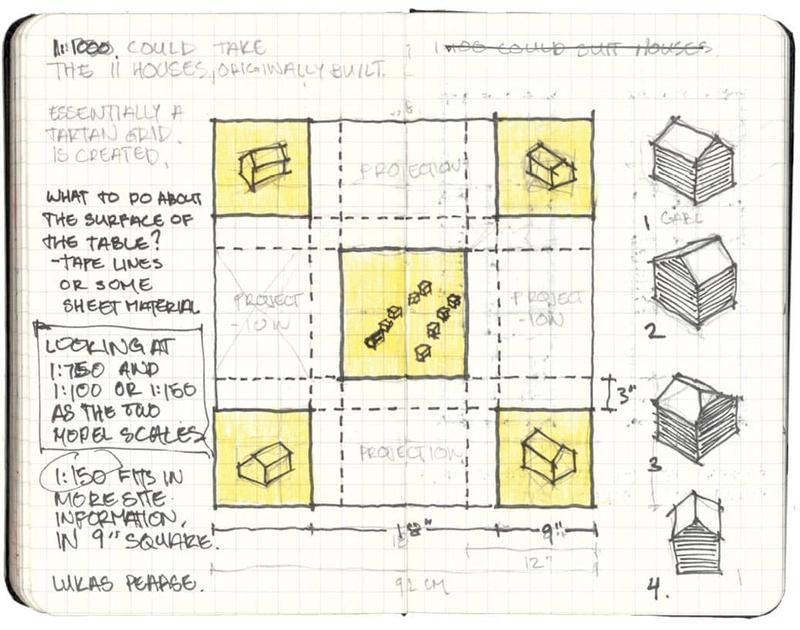 1:1000 COULD TAKE
THE 11 HOUSES, ORIGINALLY BUILT.
1:100 COULD SUIT HOUSES
ESSENTIALLY A
TARTAN GRID
IS CREATED,
WHAT TO DO ABOUT
THE SURFACE OF
THE TABLE?
-TAPE LINES
OR SOME
SHEET MATERIAL
LOOKING AT
1:750 AND
1:100 OR 1:150
AS THE TWO
MODEL SCALES
1:150 FITS IN
MORE SITE
INFORMATION,
IN 9" SQUARE.
LUKAS PEARSE.
PROJECTION
PROJECT
-ION
PROJECT
-ION
PROJECTION
3"
18"
9"
12"
92 CM
1 GABL
2
3
4.